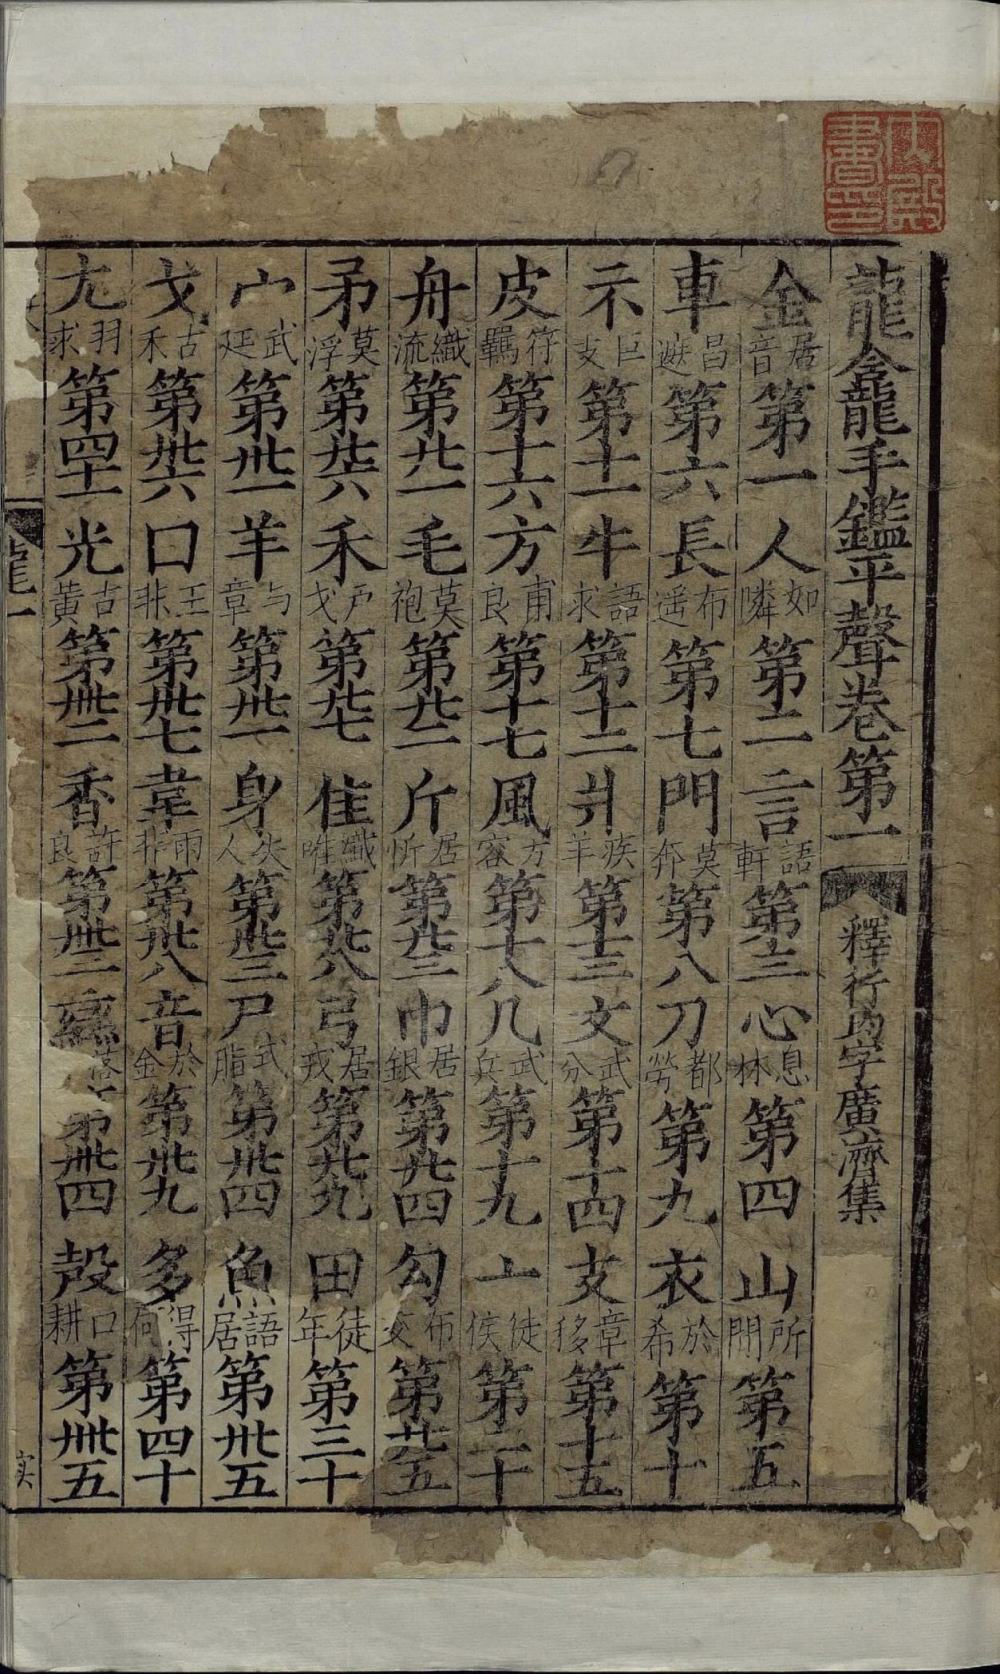 龍龕手鑑平聲卷第一 釋行均字廣濟集
金居音第一 人如隣第二 言語軒第三 心息林第四 山所間第五
車昌遮第六 長布遥第七 門莫奔第八 刀都勞第九 衣於希第十
示巨支第十一 牛語求第十二 爿疾羊第十三 文武分第十四 支章移第十五
皮符羈第十六 方甫良第十七 風方容第十八 几武兵第十九 亠徒侯第二十
舟織流第廿一 毛莫袍第廿二 斤居忻第廿三 巾居銀第廿四 勹布交第廿五
矛莫浮第廿六 禾户戈第廿七 隹織唯第廿八 弓居戎第廿九 田徒年第三十
宀武延第卅一 羊与章第卅二 身失人第卅三 尸式脂第卅四 魚語居第卅五
戈古禾第卅六 囗王非第卅七 韋雨非第卅八 音於金第卅九 多得何第四十
尢羽求第四十一 光古黄第卌二 香許良第卌三 落第卌四 殸口耕第卌五
龍一